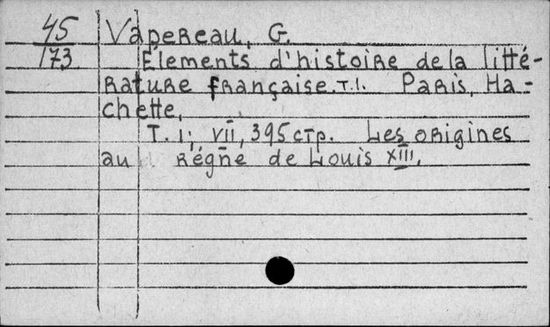 45 Vapereau, G.
173 Éléments d'histoire de la litté-
rature française. T.1. Paris, Ha-
chette,
T. 1; VII, 395 стр. Les origines
au régne de Louis XIII.